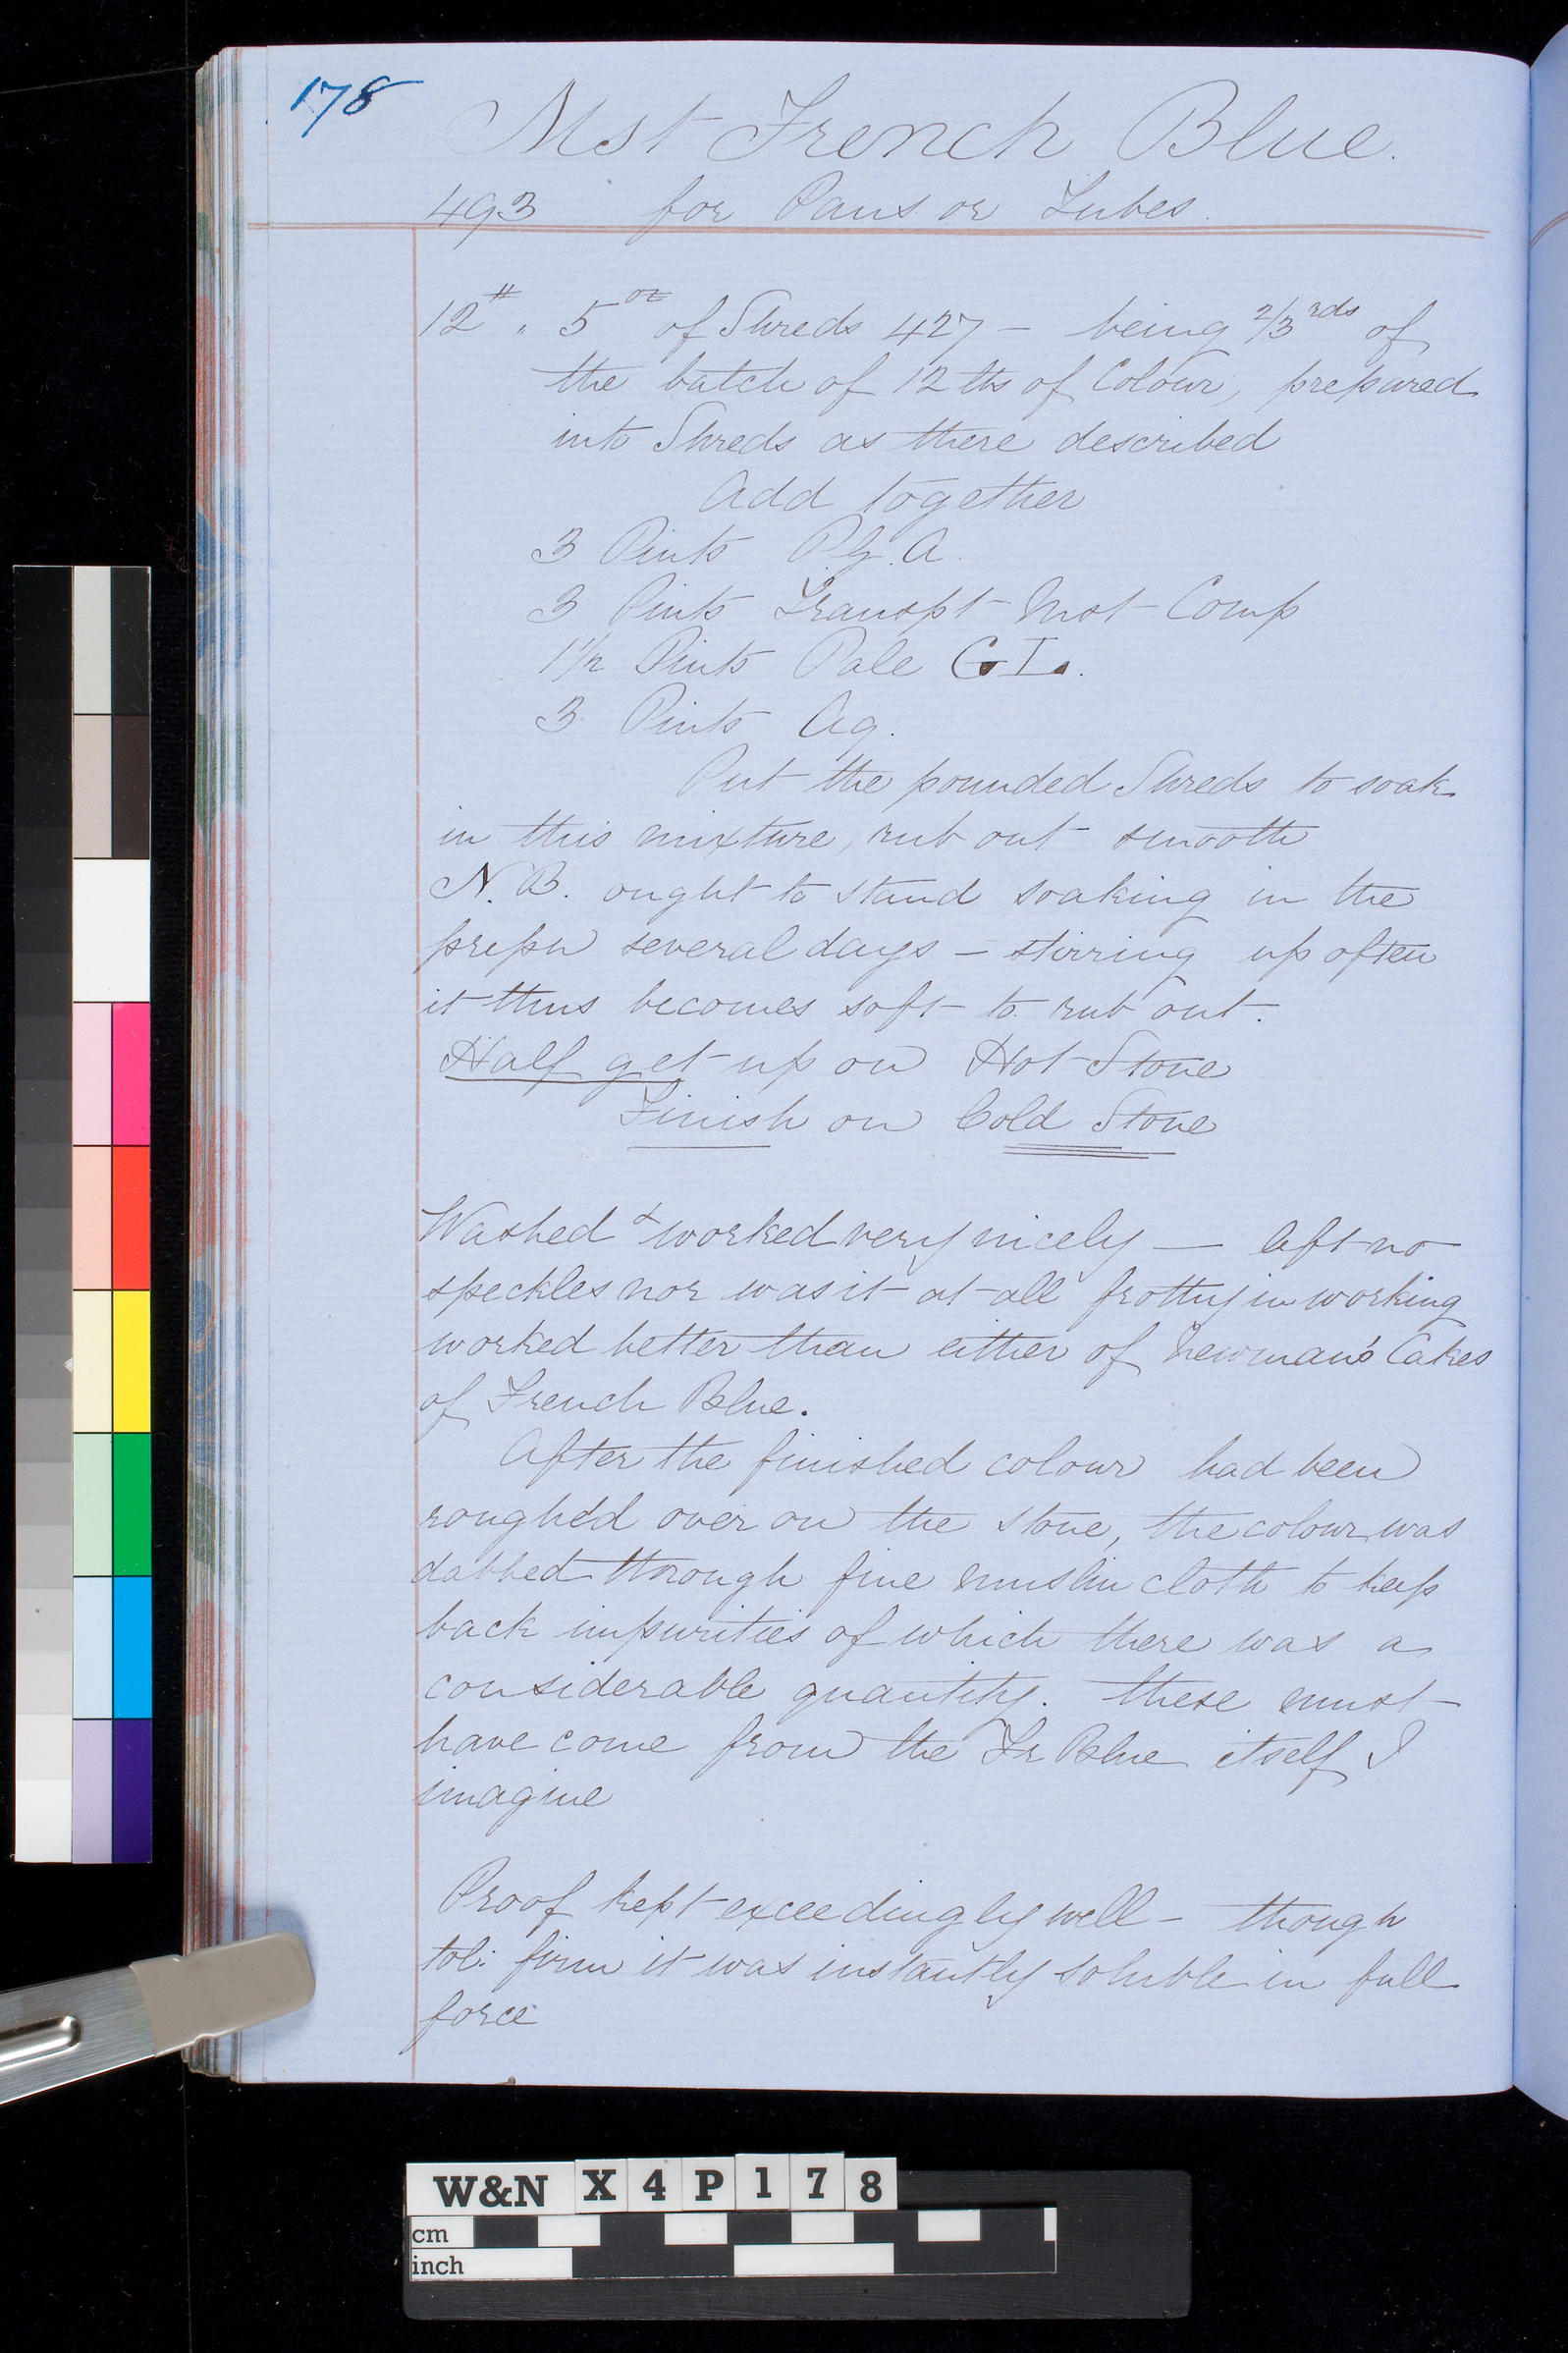 178
Mst French Blue.
493 for Pans or Tubes.
12 # " 5 oz of Shreds 427 - being 2/3rds of
the batch of 12 lbs of Colour, prepared
into Shreds as there described
Add together
3 Pints P.G.A.
3 Pints Transpt Mst Comp
1 1/2 Pints Pale G I.
3 Pints Aq.
Put the pounded Shreds to soak
in this mixture, rub out smooth
N.B. ought to stand soaking in the
prepn several days - stirring up often
it thus becomes soft to rub out.
Half get up on Hot Stone
Finish on Cold Stone
Washed & worked very nicely — left no
speckles nor was it at all frothy in working
worked better than either of Newman's Cakes
of French Blue.
After the finished colour had been
rough'd over on the stone, the colour was
dabbed through fine muslin cloth to keep
back impurities of which there was a
considerable quantity. these must
have come from the Fr Blue itself I
imagine
Proof kept exceedingly well - though
tol: firm it was instantly soluble in full
force
W&N X 4 P 1 7 8
cm
inch